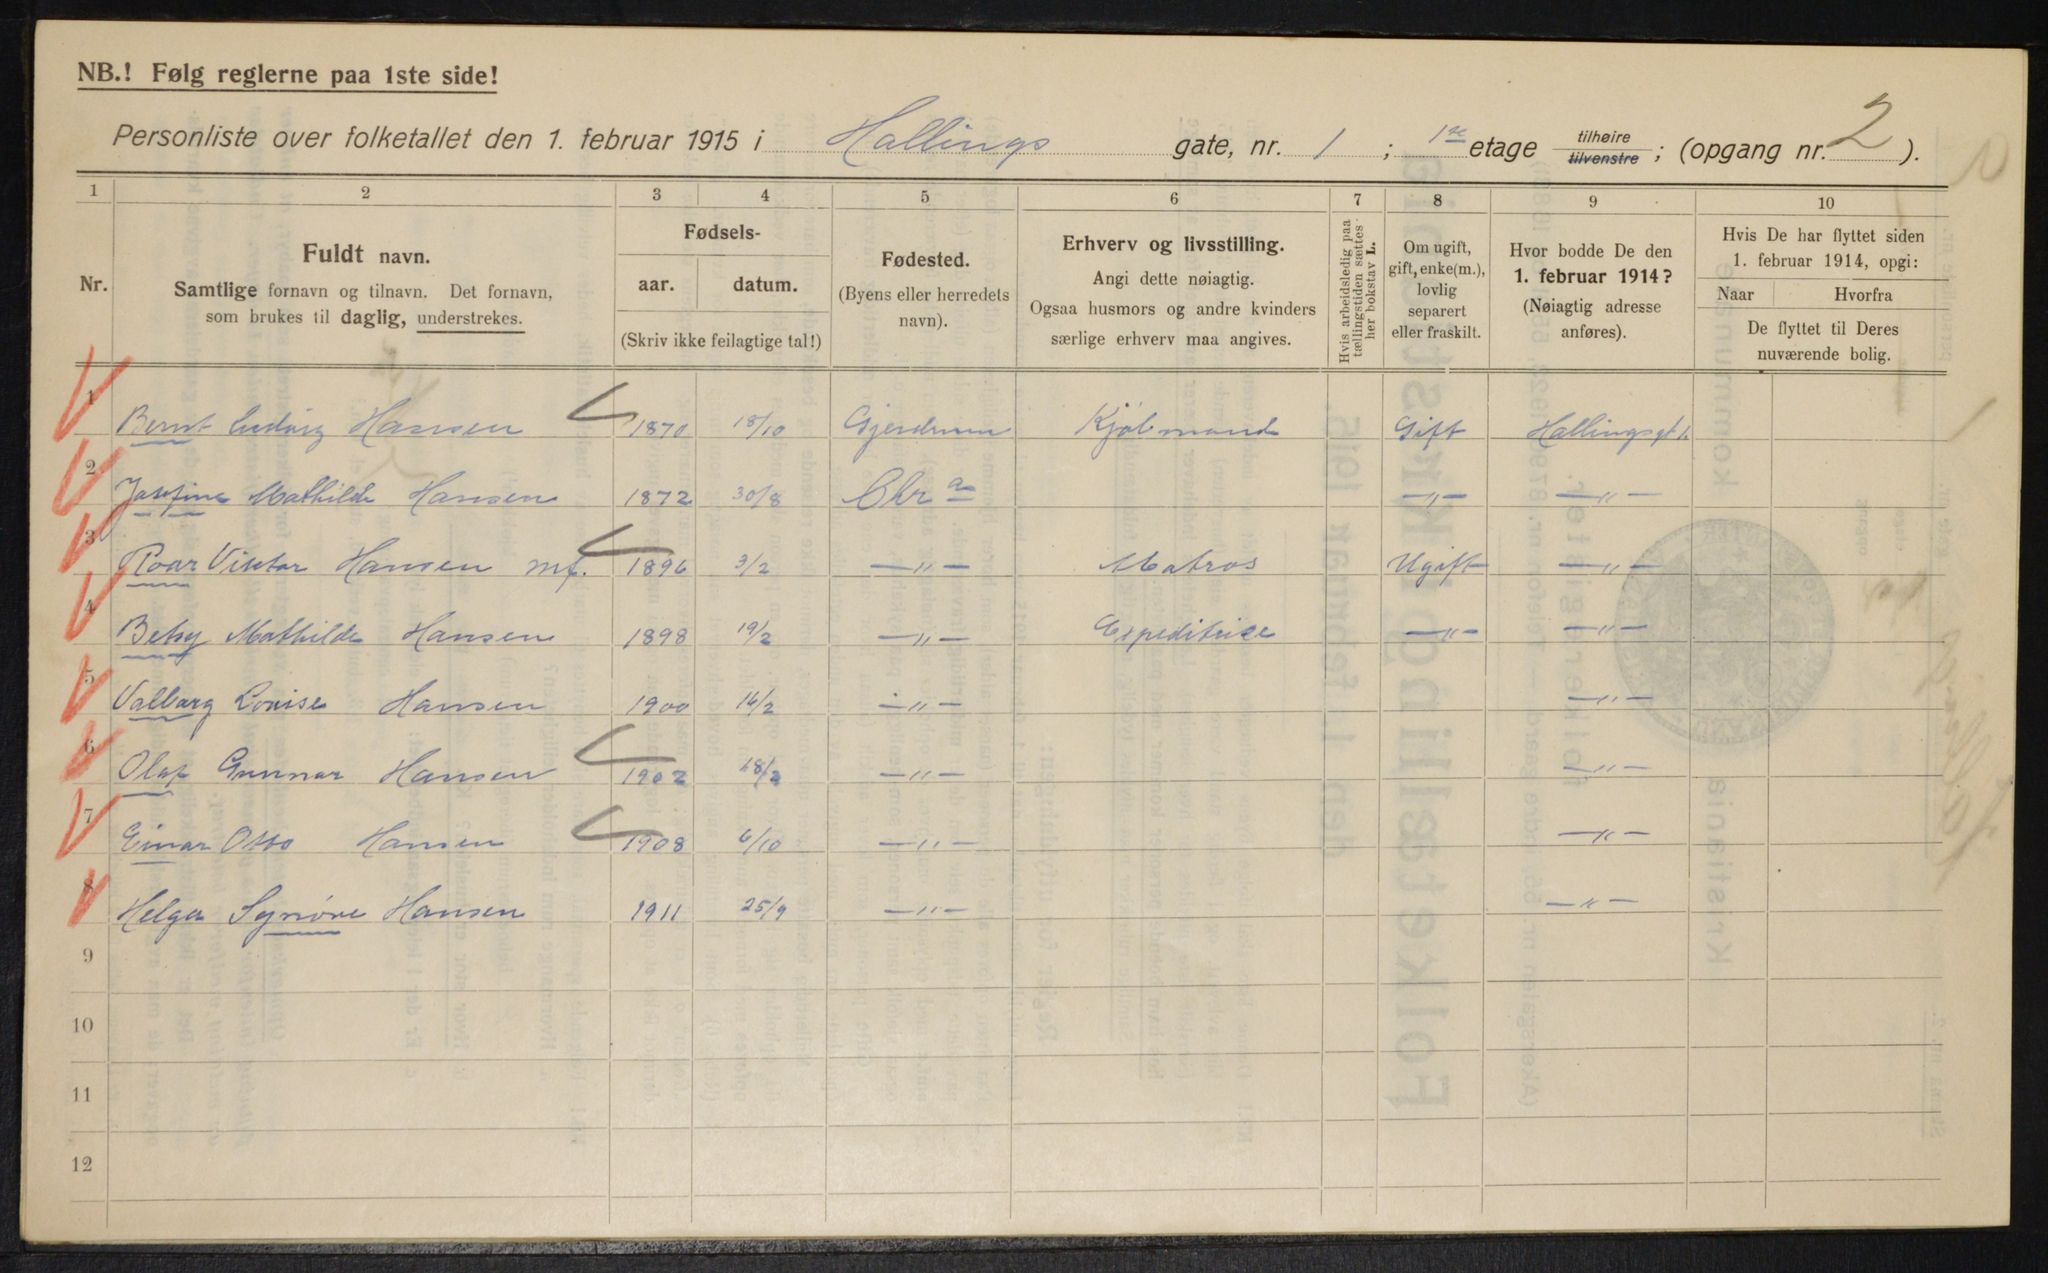 NB.! Følg reglerne paa 1ste side!
Personliste over folketallet den 1. februar 1915 i Hallings gate, nr. 1 ; 1ste etage tilhøire tilvenstre ; (opgang nr. 2 ).
1 2 3 4 5 6 7 8 9 10
Nr.
Fuldt navn.
Samtlige fornavn og tilnavn. Det fornavn,
som brukes til daglig, understrekes.
Fødsels-
aar. datum.
(Skriv ikke feilagtige tal!)
Fødested.
(Byens eller herredets
navn).
Erhverv og livsstilling.
Angi dette nøiagtig.
Ogsaa husmors og andre kvinders
særlige erhverv maa angives.
Hvis arbeidsledig paa
tællingstiden sættes
her bokstav L.
Om ugift,
gift, enke(m.),
lovlig
separert
eller fraskilt.
Hvor bodde De den
1. februar 1914?
(Nøiagtig adresse
anføres).
Hvis De har flyttet siden
1. februar 1914, opgi:
Naar Hvorfra
De flyttet til Deres
nuværende bolig.
1 Bernt Ludvig Hansen 1870 18/10 Gjerdrum Kjøbmand Gift Hallingsgt 1.
2 Josefine Mathilde Hansen 1872 30/8 Chr a —"— —"—
3 Roar Viktor Hansen mf. 1896 3/2 —"— Matros Ugift —"—
4 Betsy Mathilde Hansen 1898 19/2 —"— Expeditrise —"— —"—
5 Valborg Louise Hansen 1900 16/2 —"— —"—
6 Olaf Gunnar Hansen 1902 18/2 —"— —"—
7 Einar Otto Hansen 1908 6/10 —"— —"—
8 Helga Synøve Hansen 1911 25/9 —"— —"—
9
10
11
12